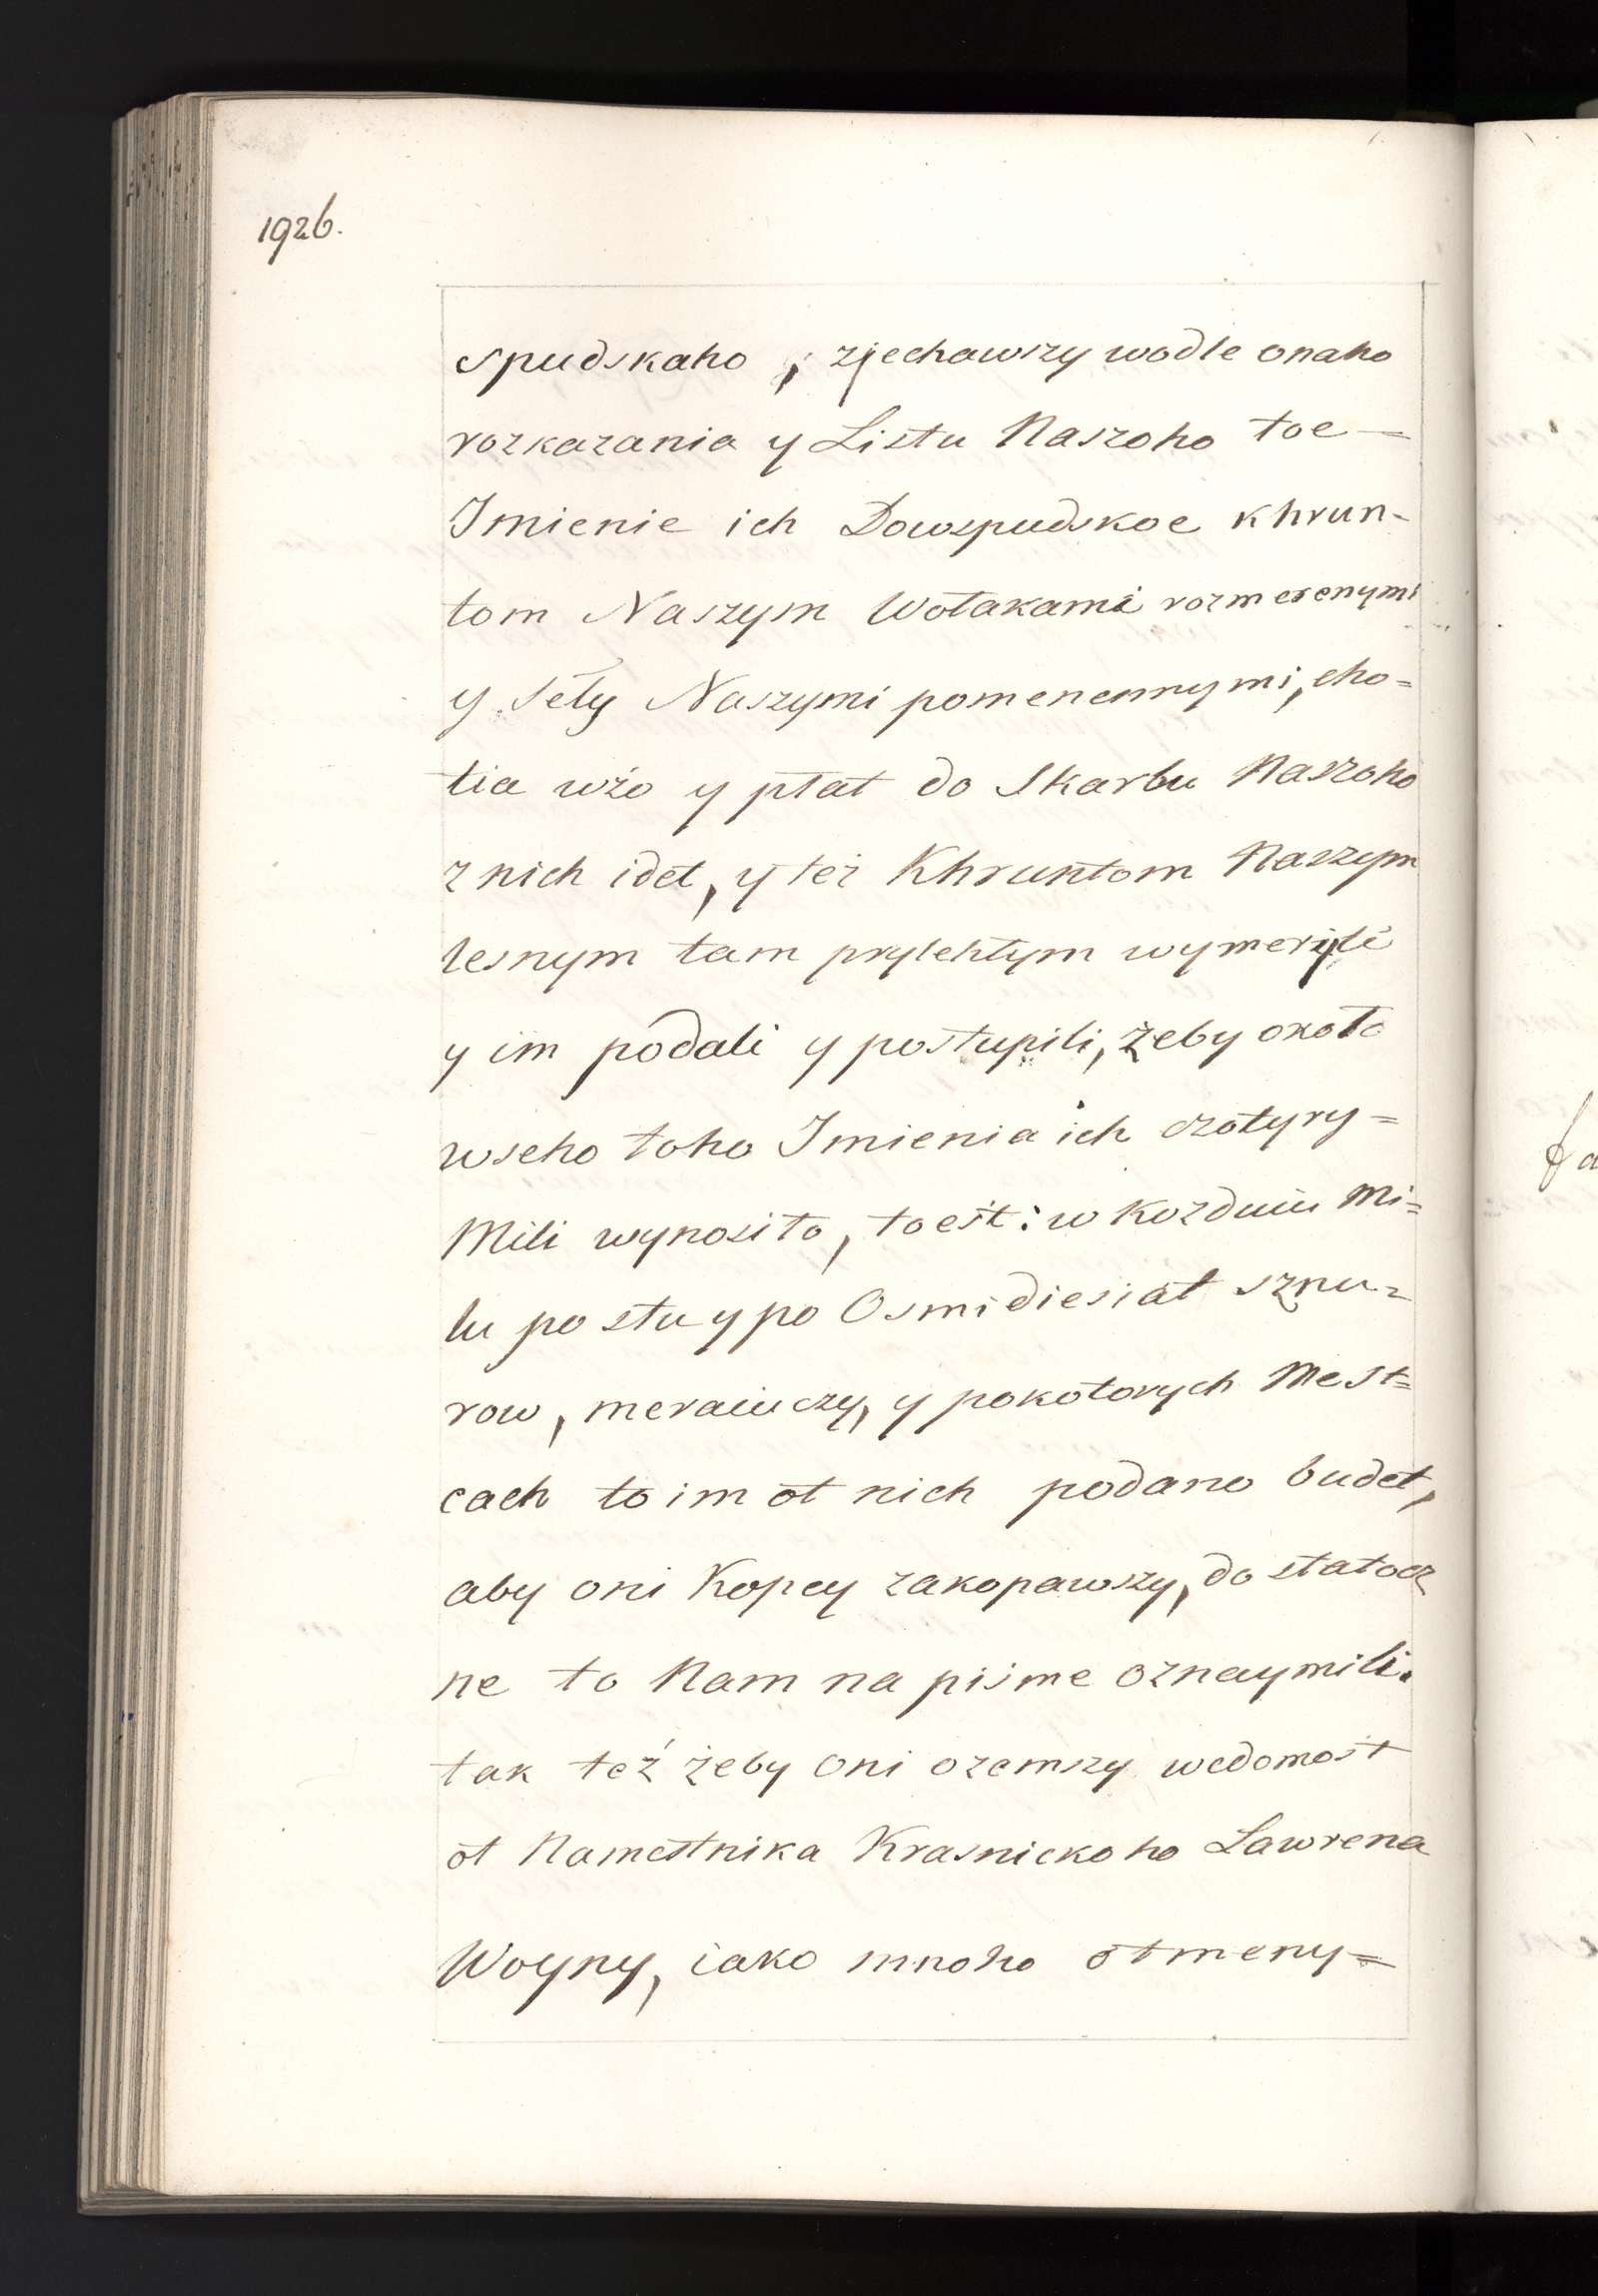 1926.
spudskaho, zjechawszy wodle onaho
rozkazania y Listu Naszoho toe—
Imienie ich Dowspudskoe khrun-
tom Naszym Wołakami rozmerenymi
y Seły Naszymi pomenennymi, cho=
tia wżo y płat do Skarbu Naszoho
z nich idet, y też Khruntom Naszym
lesnym tam prylehłym wymerili
y im podali y postupili, żeby około
wseho toho Imienia ich czotyry=
Mili wynosiło, to est: w Kozduiu Mi=
lu po stu y po Osmidiesiat sznu=
row, meraiuczy, y po kotorych Mest=
cach to im ot nich podano budet,
aby oni Kopcy zakopawszy, do statocz
ne to Nam na pisme oznaymili.
tak też żeby oni ozemszy wedomost
ot Namestnika Krasnickoho Lawrena
Woyny, iako mnoho otmeny=